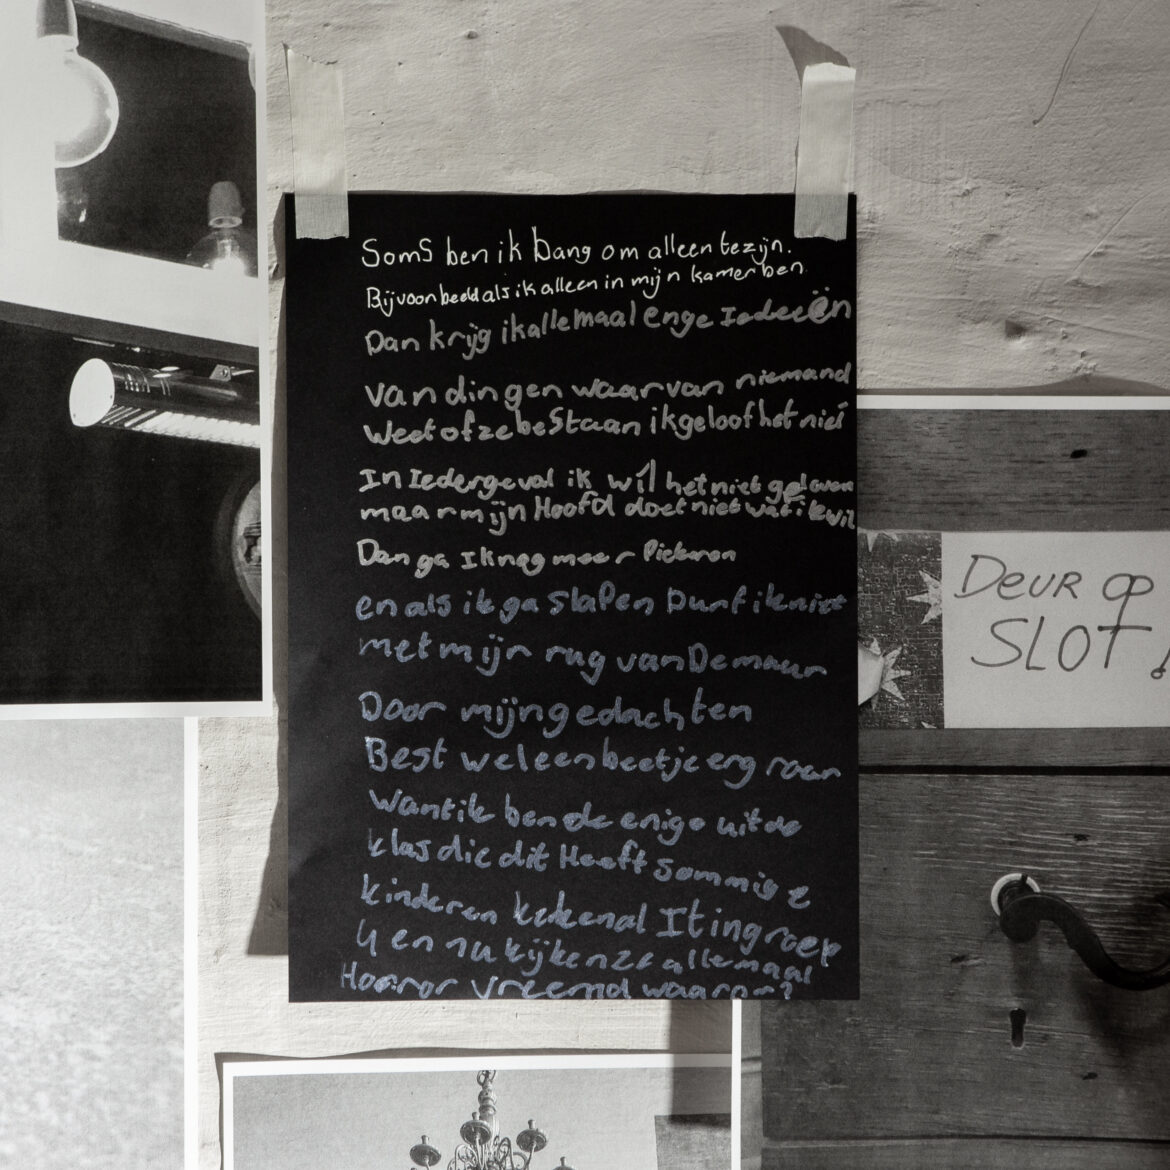 Soms ben ik bang om alleen tezijn.
Bijvoorbeeld als ik alleen in mijn kamer ben
Dan krijg ik allemaal enge Iedeeën
van dingen waarvan niemand
weet of ze beStaan ik geloof het niet
In Iedergeval ik wil het niet geloven
maar mijn Hoofd doet niet wat ik wil
Dan ga Ik nog meer Piekeren
en als ik ga Slapen Durf ik niet
met mijn rug van De muur
Door mijn gedachten
Best wel een beetje eng
want ik ben de enige uit de
klas die dit Heeft Sommige
kinderen allemaal It in groep
4 en nu kijken ze allemaal
Horror vreemd waarom?
DEUR OP
SLOT!